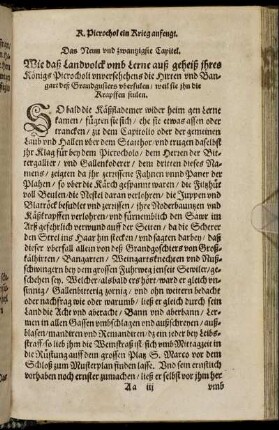 K. Pierochol ein Krieg anfengt.
Das Neun vnd zwantzigste Capitel.
Wie daß Landvolck vnd Lerne auß geheiß jhres
Königs Pierocholi vnversehehens die Hirten vnd Ban-
gart deß Grandgusiers vberfielen / weil sie jhn die
Krapffen stalen.
SO bald die Käßflademer wider heim gen Lerne
kamen / fügten sie sich / ehe sie etwas assen oder
trancken / zu dem Capitolio oder der gemeinen
Laub vnd Hallen vber dem Statthor / vnd trugen daselbst
jhr Klag für bey dem Pierocholo / dem Herren der Bit-
tergallier / vnd Gallenköderer / dem dritten dieses Na-
mens / zeigten da jhr zerrissene Fahnen vnnd Paner der
Plahen / so vber die Kärch gespannt waren / die Filtzhüt
voll Beulen / die Nestel daran verlohren / die Juppen vnd
Blatröck besudlet vnd zerissen / jhre Niderbauntzen vnd
Käßkrapffen verlohren / vnd fürnemblich den Saur im
Arß gefehrlich verwund auff der Seiten / da die Scherer
den Strel ins Haar jhn stecken / vnd sagten darbey / daß
dieser vberfall allein von deß Grandgoschiers von Groß-
kälhirten / Bangarten / Weingartsknechten vnd Nuß-
schwingern bey dem grossen Fuhrweg jenseit Sewiler / ge-
schehen sey. Welcher / als bald ers hört / ward er gleich vn-
sinnig / Gallenbitterig zornig / vnd ohn weitern bedacht
oder nachfrag wie oder warumb / ließ er gleich durch sein
Land die Acht vnd aberacht / Bann vnd aberbann / Ler-
men in allen Gassen vmbschlagen vnd außschreyen / auß-
blasen / mandiren vnd Remandiren / dz ein jeder bey Leibs-
straff so lieb jhm die Weinstraß ist sich vmb Mittagzeit in
die Rüstung auff dem grossen Platz S. Marco vor dem
Schloß zum Musterplan finden lasse. Vnd sein ernstlich
vorhaben noch ernster zumachen / ließ er selbst vor jhm her
Aa iij
vmb